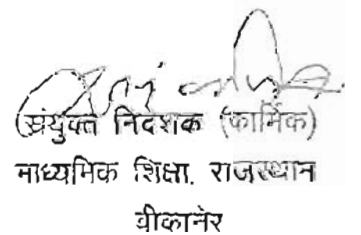 (संयुक्त निदशक (कार्मिक)
माध्यमिक शिक्षा, राजस्थान
बीकानेर